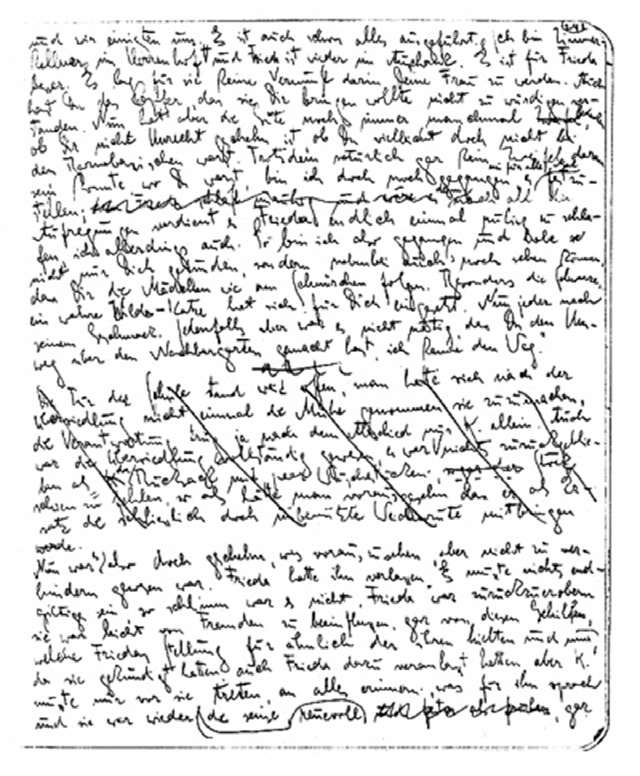 und wir einigten uns. Es ist auch schon alles ausgeführt. Ich bin Zimmer-
kellner im Herrenhof und Frieda ist wieder im Ausschank. Es ist für Frieda
besser. Es lag für sie keine Vernunft darin Deine Frau zu werden. Auch
hast Du das Opfer, das sie Dir bringen wollte nicht zu würdigen ver-
standen. Nun hat aber die Gute noch immer manchmal
ob Dir nicht Unrecht geschehn ist ob Du vielleicht doch nicht bei
den Barnabasischen warst. Trotzdem natürlich gar kein Zweifel daran
sein konnte wo Du warst, bin ich doch noch gegangen es ein für allemal festzu-
stellen; nach all den
Aufregungen verdient es Frieda endlich einmal ruhig zu schla-
fen, ich allerdings auch. So bin ich also gegangen und habe
nicht nur Dich gefunden, sondern nebenbei auch noch sehen können,
dass Dir die Mädchen wie am Schnürchen folgen. Besonders die Schwarze,
ein wahre Wilde-Katze hat sich für Dich eingesetzt. Nun jeder nach
seinem Geschmack. Jedenfalls aber war es nicht nötig das Du den Um-
weg über den Nachbargarten gemacht hast, ich kenne den Weg."
Die Tür der Schule stand weit offen, man hatte sich nach der
Übersiedlung nicht einmal die Mühe genommen sie zuzumachen,
die Verantwortung trug ja nach dem Abschied nur K. allein. Auch
war die Übersiedlung vollständig gewesen, es war nichts zurückgeblie-
ben als Rucksack mit paar Wäschestücken,
schien zu fehlen, so als hätte man vorausgesehn das er als Er-
satz die schliesslich doch unbenützte Weidenrute mitbringen
werde.
Nun war es also doch geschehn, was vorauszusehen aber nicht zu ver-
hindern gewesen war. Frieda hatte ihn verlassen. Es musste nichts end-
giltiges sein so schlimm war es nicht Frieda war zurückzuerobern
sie war leicht von Fremden zu beinflussen, gar von diesen Gehilfen,
welche Friedas Stellung für ähnlich der ihren hielten und nun,
da sie gekündigt hatten auch Frieda dazu veranlasst hatten aber K.
musste nur vor sie treten, an alles erinnern, was für ihn sprach
und sie war wieder die seine reuevoll gar